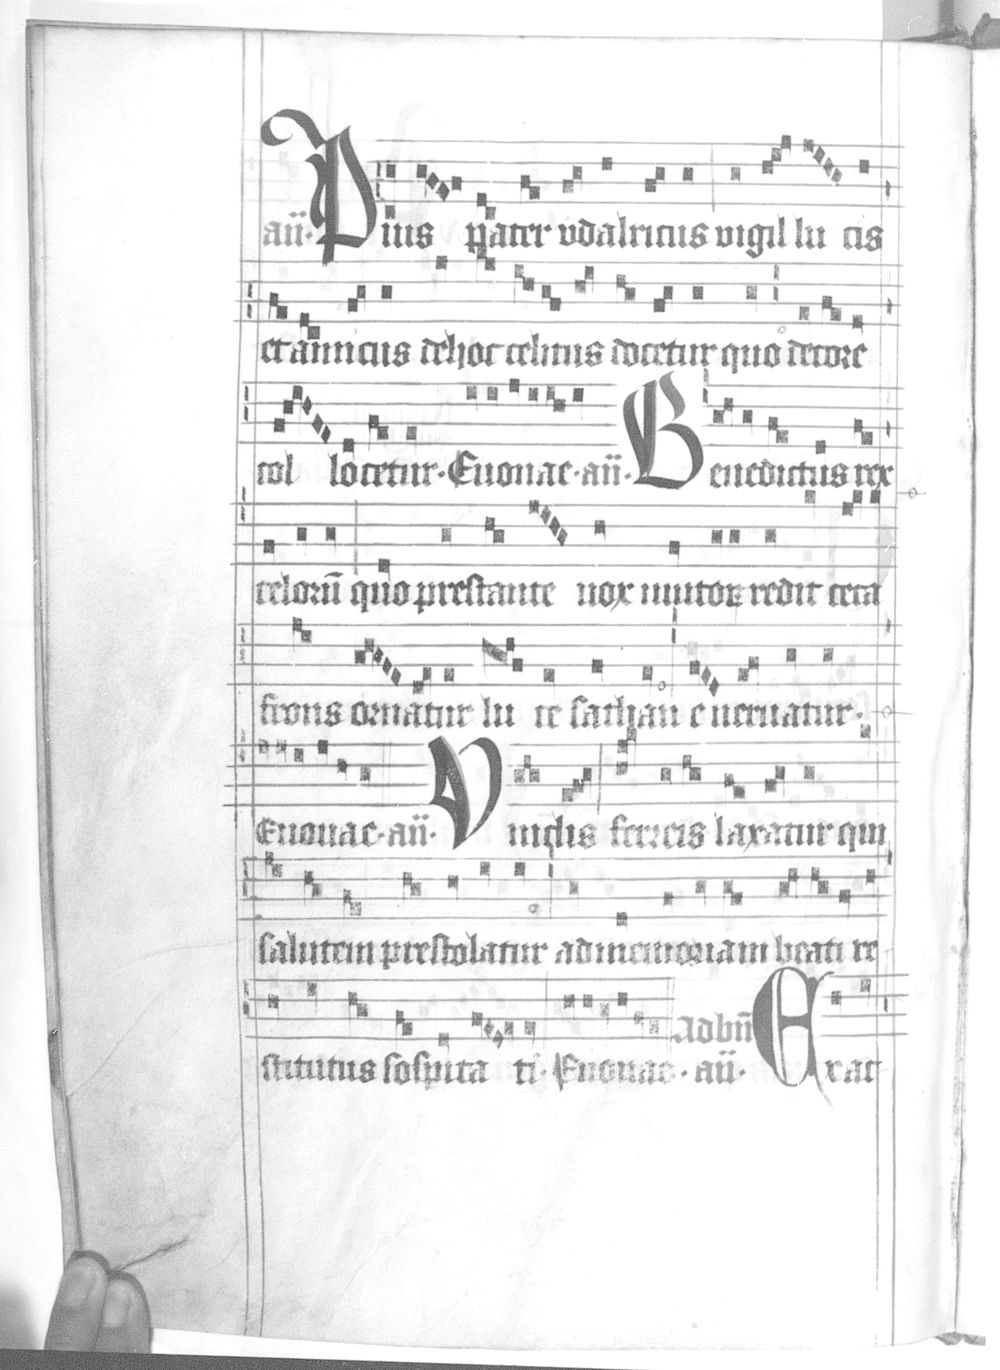 an̄. Pius pater vdalricus vigil lu cis
et amicus de hoc celitus docetur quo decore
col locetur. Euouae. an̄. Benedictus rex
celorū quo prestante uox mutor redit ceta
frons ornatur lu ce sathan e neruatur.
Euouae. an̄. Vinclis ferreis laxatur qui
salutem prestolatur ad memoriam beati re
stitutus sospita ti. Euouae. an̄. adbn̄ Erat